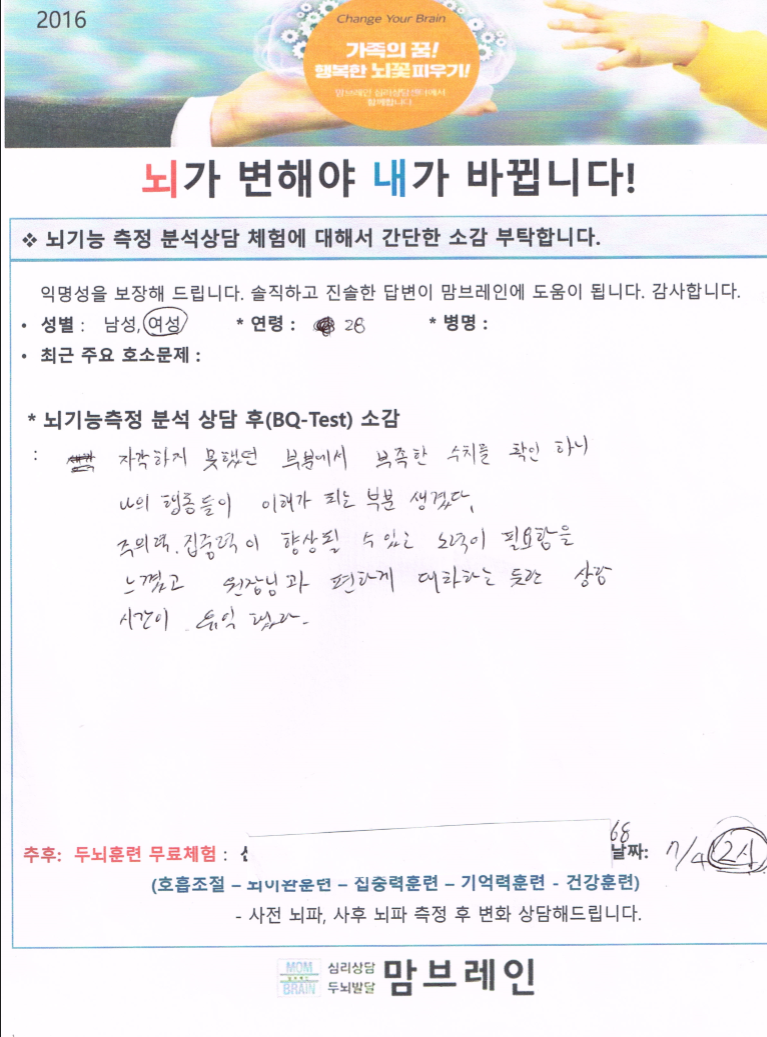 2016
Change Your Brain
가족의 꿈!
행복한 뇌꽃피우기!
맘브레인 심리상담센터에서
함께합니다
뇌가 변해야 내가 바뀝니다!
❖ 뇌기능 측정 분석상담 체험에 대해서 간단한 소감 부탁합니다.
익명성을 보장해 드립니다. 솔직하고 진솔한 답변이 맘브레인에 도움이 됩니다. 감사합니다.
• 성별 : 남성, 여성 * 연령 : 28 * 병명 :
• 최근 주요 호소문제 :
* 뇌기능측정 분석 상담 후(BQ-Test) 소감
: 자각하지 못했던 부분에서 부족한 수치를 확인 하니
나의 행동들이 이해가 되는 부분 생겼다.
주의력.집중력이 향상될 수 있는 노력이 필요함을
느꼈고 원장님과 편하게 대화하는 듯한 상담
시간이 유익 했다.
68
추후: 두뇌훈련 무료체험 : 날짜: 7/4 2시
(호흡조절 – 뇌이완훈련 – 집중력훈련 – 기억력훈련 - 건강훈련)
- 사전 뇌파, 사후 뇌파 측정 후 변화 상담해드립니다.
MOM
BRAIN
심리상담
두뇌발달
맘브레인